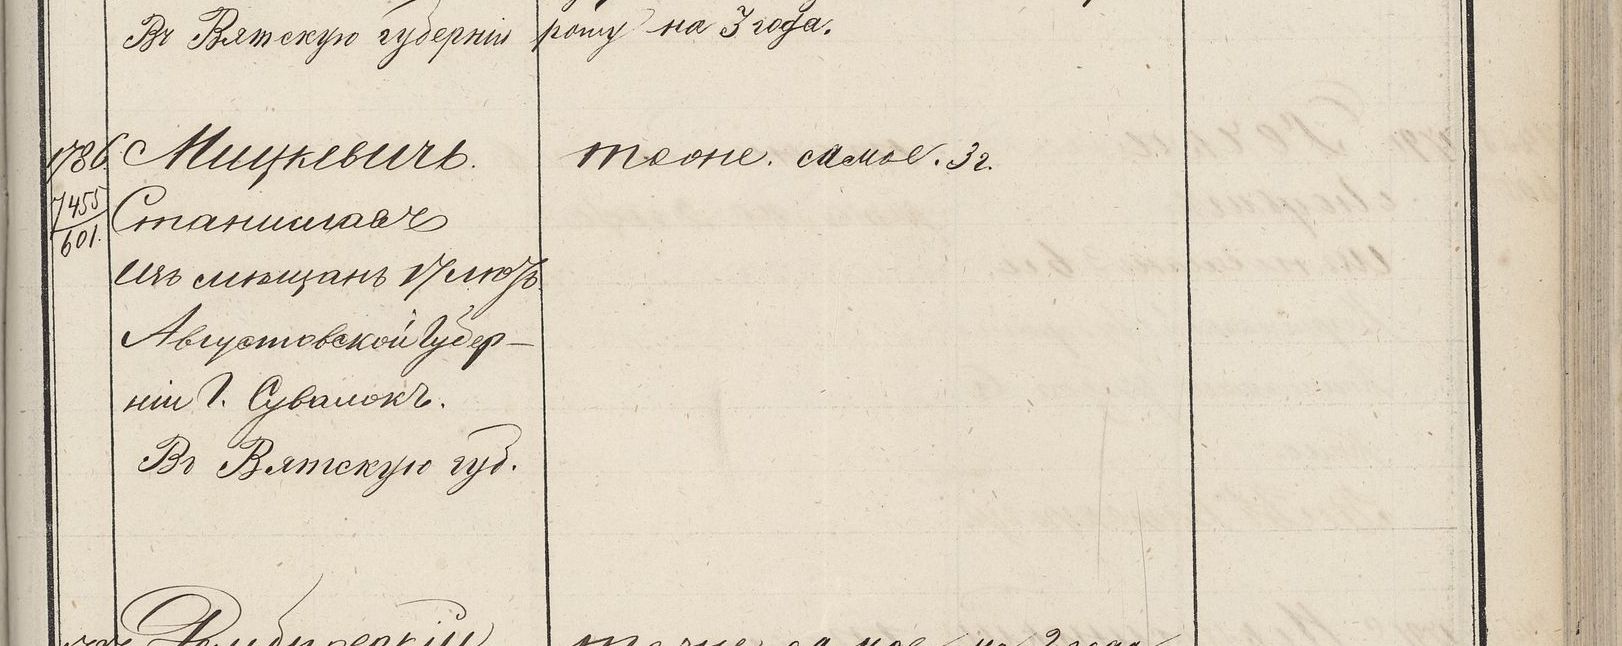 Въ Вятскую губернію
роту на 3 года.
1786. Мицкевичъ.
тоже. самое. 3 г.
7455
601.
Станиславъ
изъ мѣщанъ 17 лѣтъ.
Августовской Губер-
ніи Г. Сувалокъ.
Въ Вятскую губ.